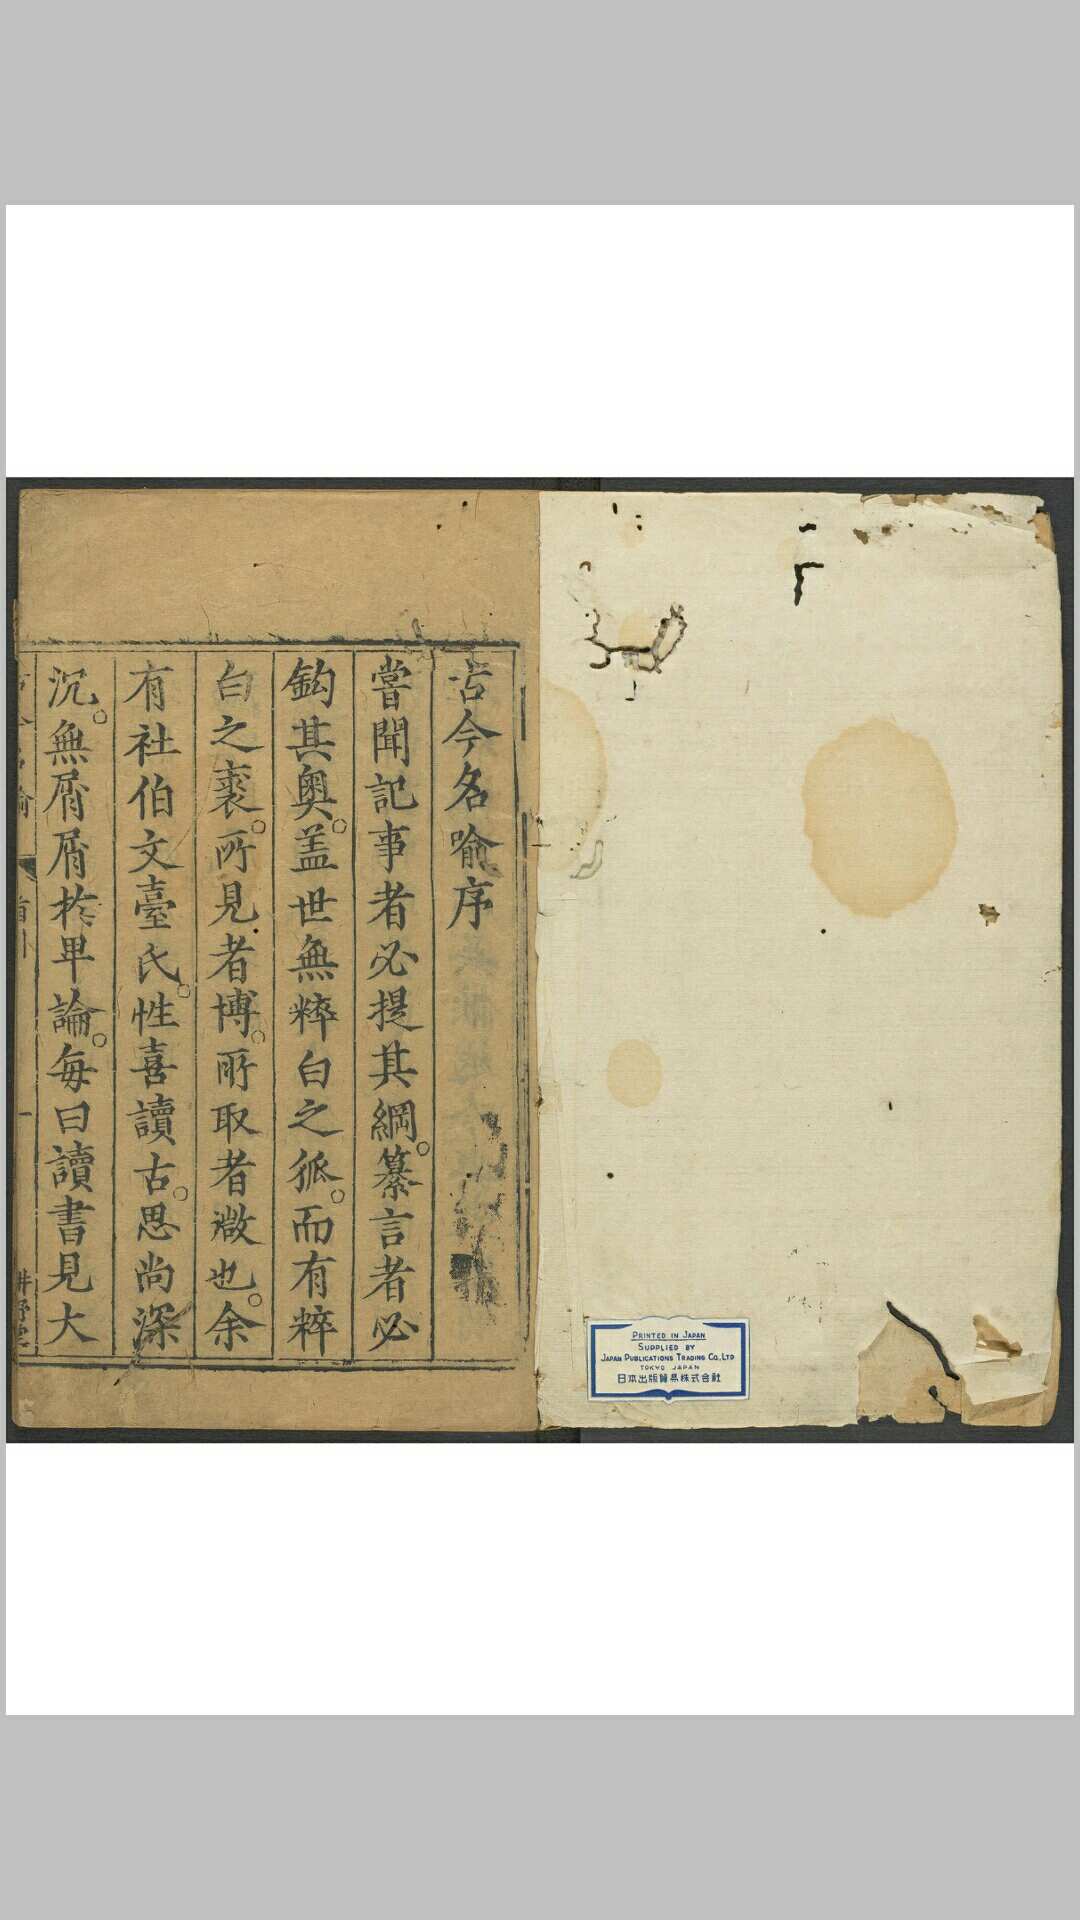 古今名喻序
嘗聞記事者必提其綱。纂言者必
鈎其奧。盖世無粹白之狐。而有粹
白之裘。所見者博。所取者微也。余
有社伯文臺氏。性喜讀古。思尚深
沉。無屑屑於卑論。每曰讀書見大
PRINTED IN JAPAN
SUPPLIED BY
JAPAN PUBLICATIONS TRADING CO., LTD
TOKYO JAPAN
日本出版貿易株式会社